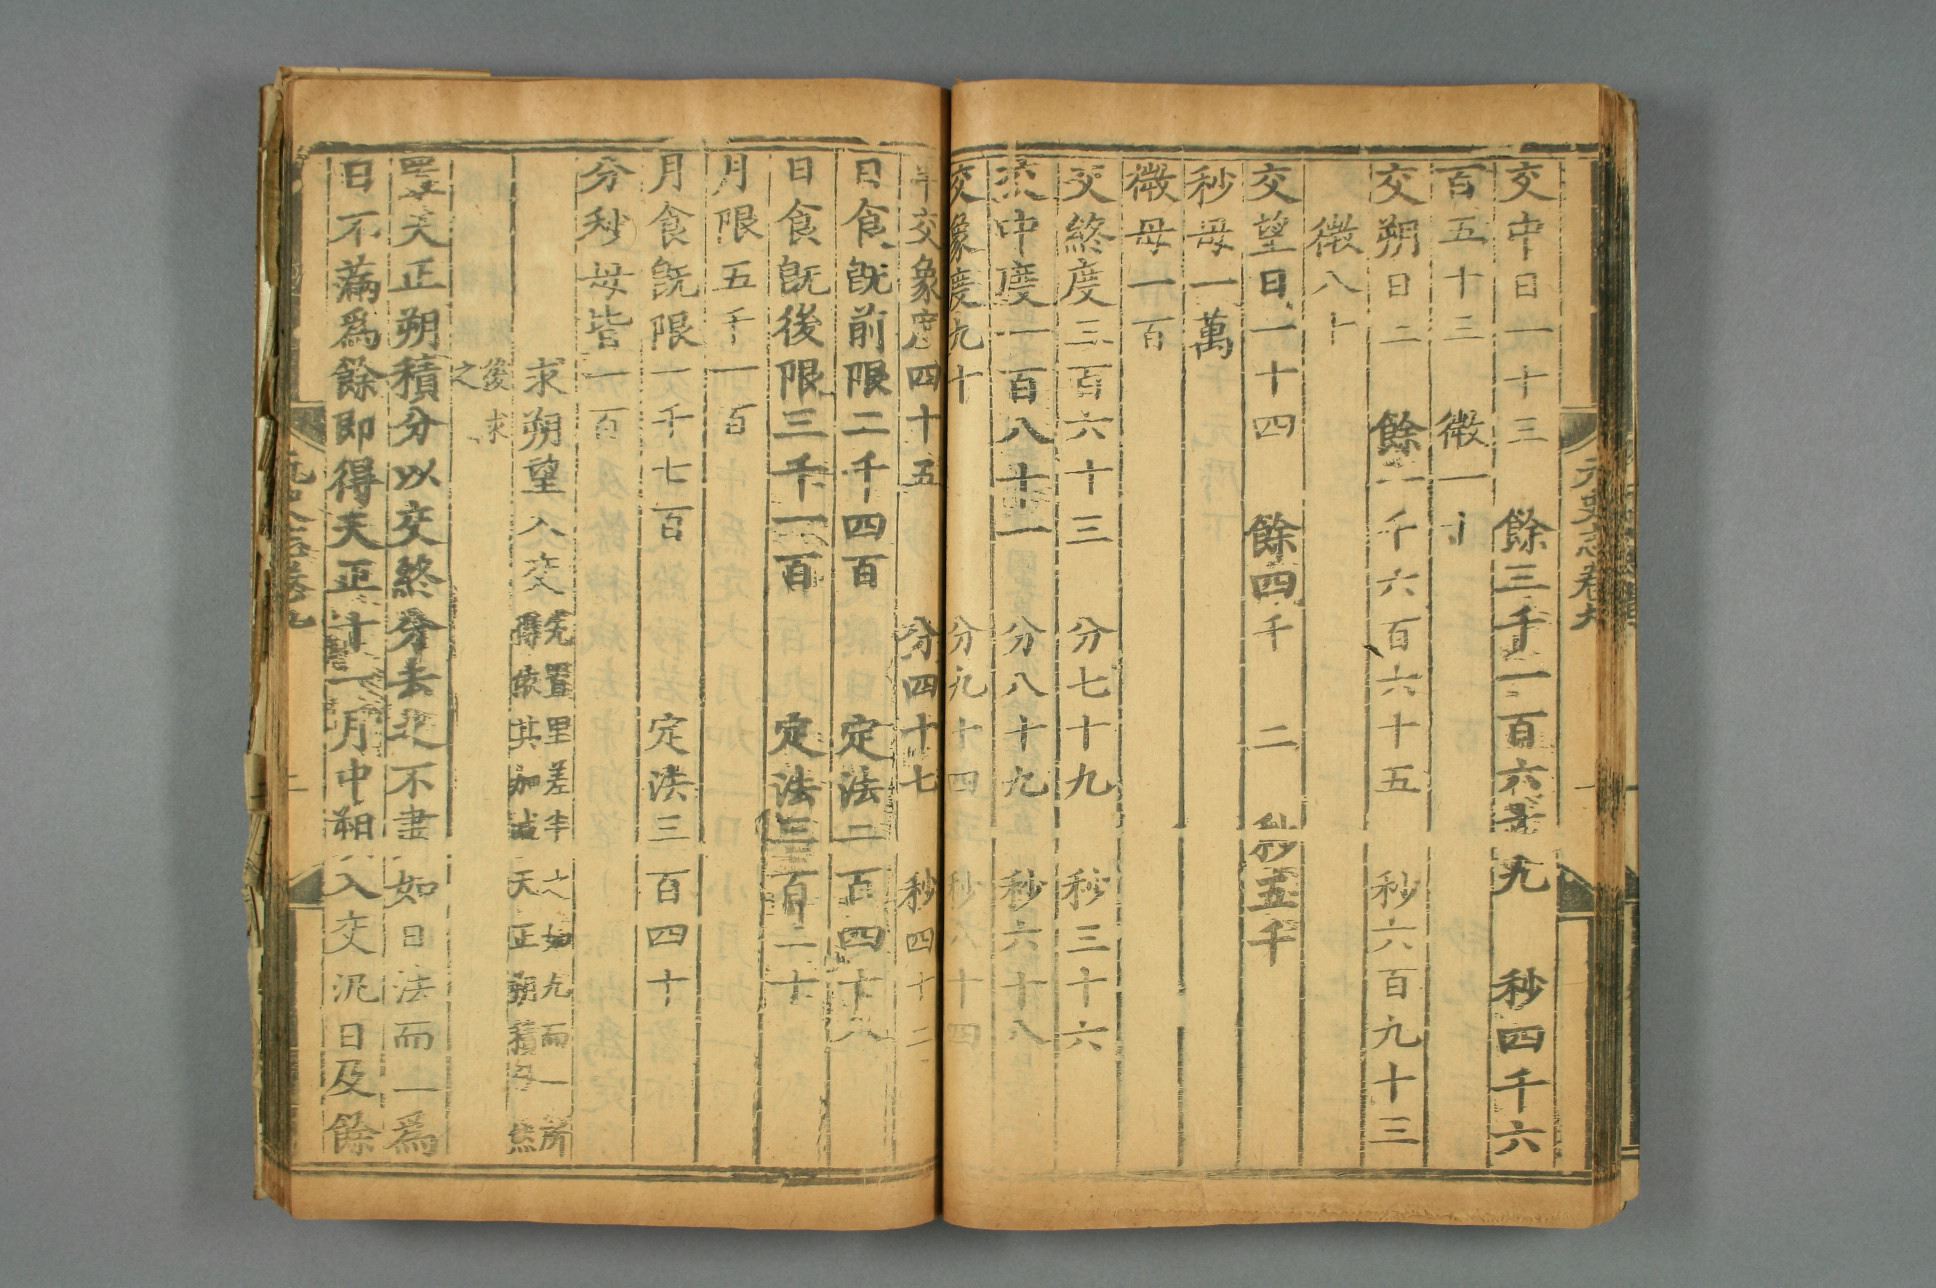 元史志卷九
交中日一十三　餘三千一百六十九　秒四千六
百五十三　微一十
交朔日二　餘一千六百六十五　秒六百九十三
微八十
交望日一十四　餘四千　二　秒五千
秒母一萬
微母一百
交終度三百六十三　分七十九　秒三十六
交中度一百八十一　分八十九　秒六十八
交象度九十　分九十四　秒八十四
半交象度四十五　分四十七　秒四十二
日食既前限二千四百　定法二百四十八
日食既後限三千一百　定法三百二十
月限五千一百
月食既限一千七百　定法三百四十
分秒母皆一百
求朔望入交
先置里差半之如九而一所
得依其加減天正朔積分然
後求
之
置天正朔積分以交終分去之不盡如日法而一爲
日不滿爲餘即得天正十一月中朔入交汎日及餘
元史志卷九